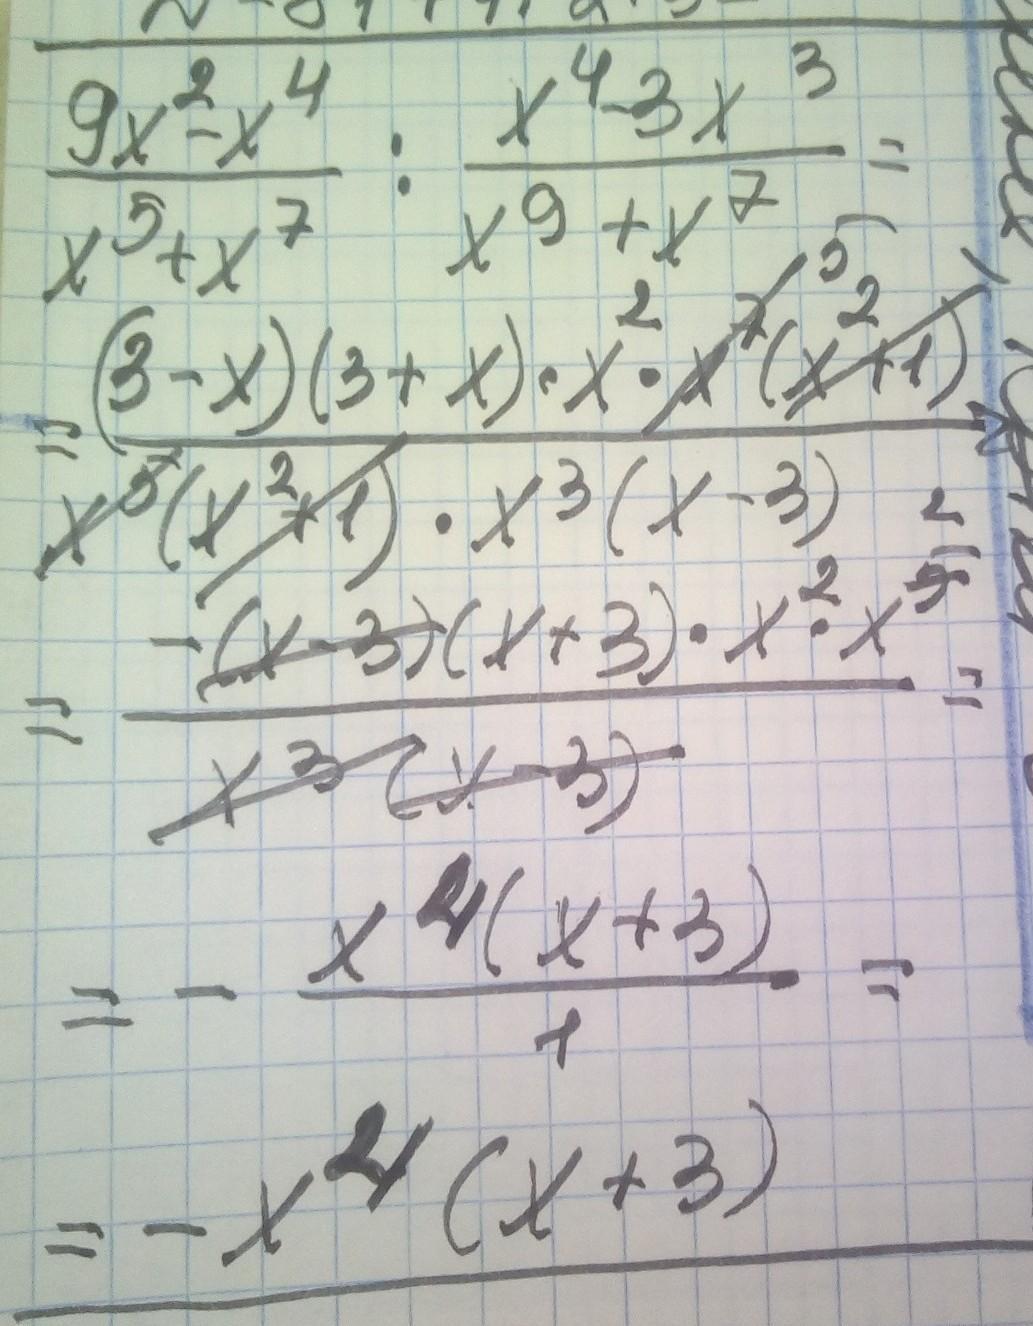 9x²-x⁴ / x⁵+x⁷ : x⁴-3x³ / x⁹+x⁷ =
= (3-x)(3+x)·x²·x⁷ ⁵(x²+1) / x⁵(x²+1)·x³(x-3)
= -(x-3)(x+3)·x²·x⁵ ² / x³(x-3) =
= - x⁴(x+3) / 1 =
= -x⁴(x+3)